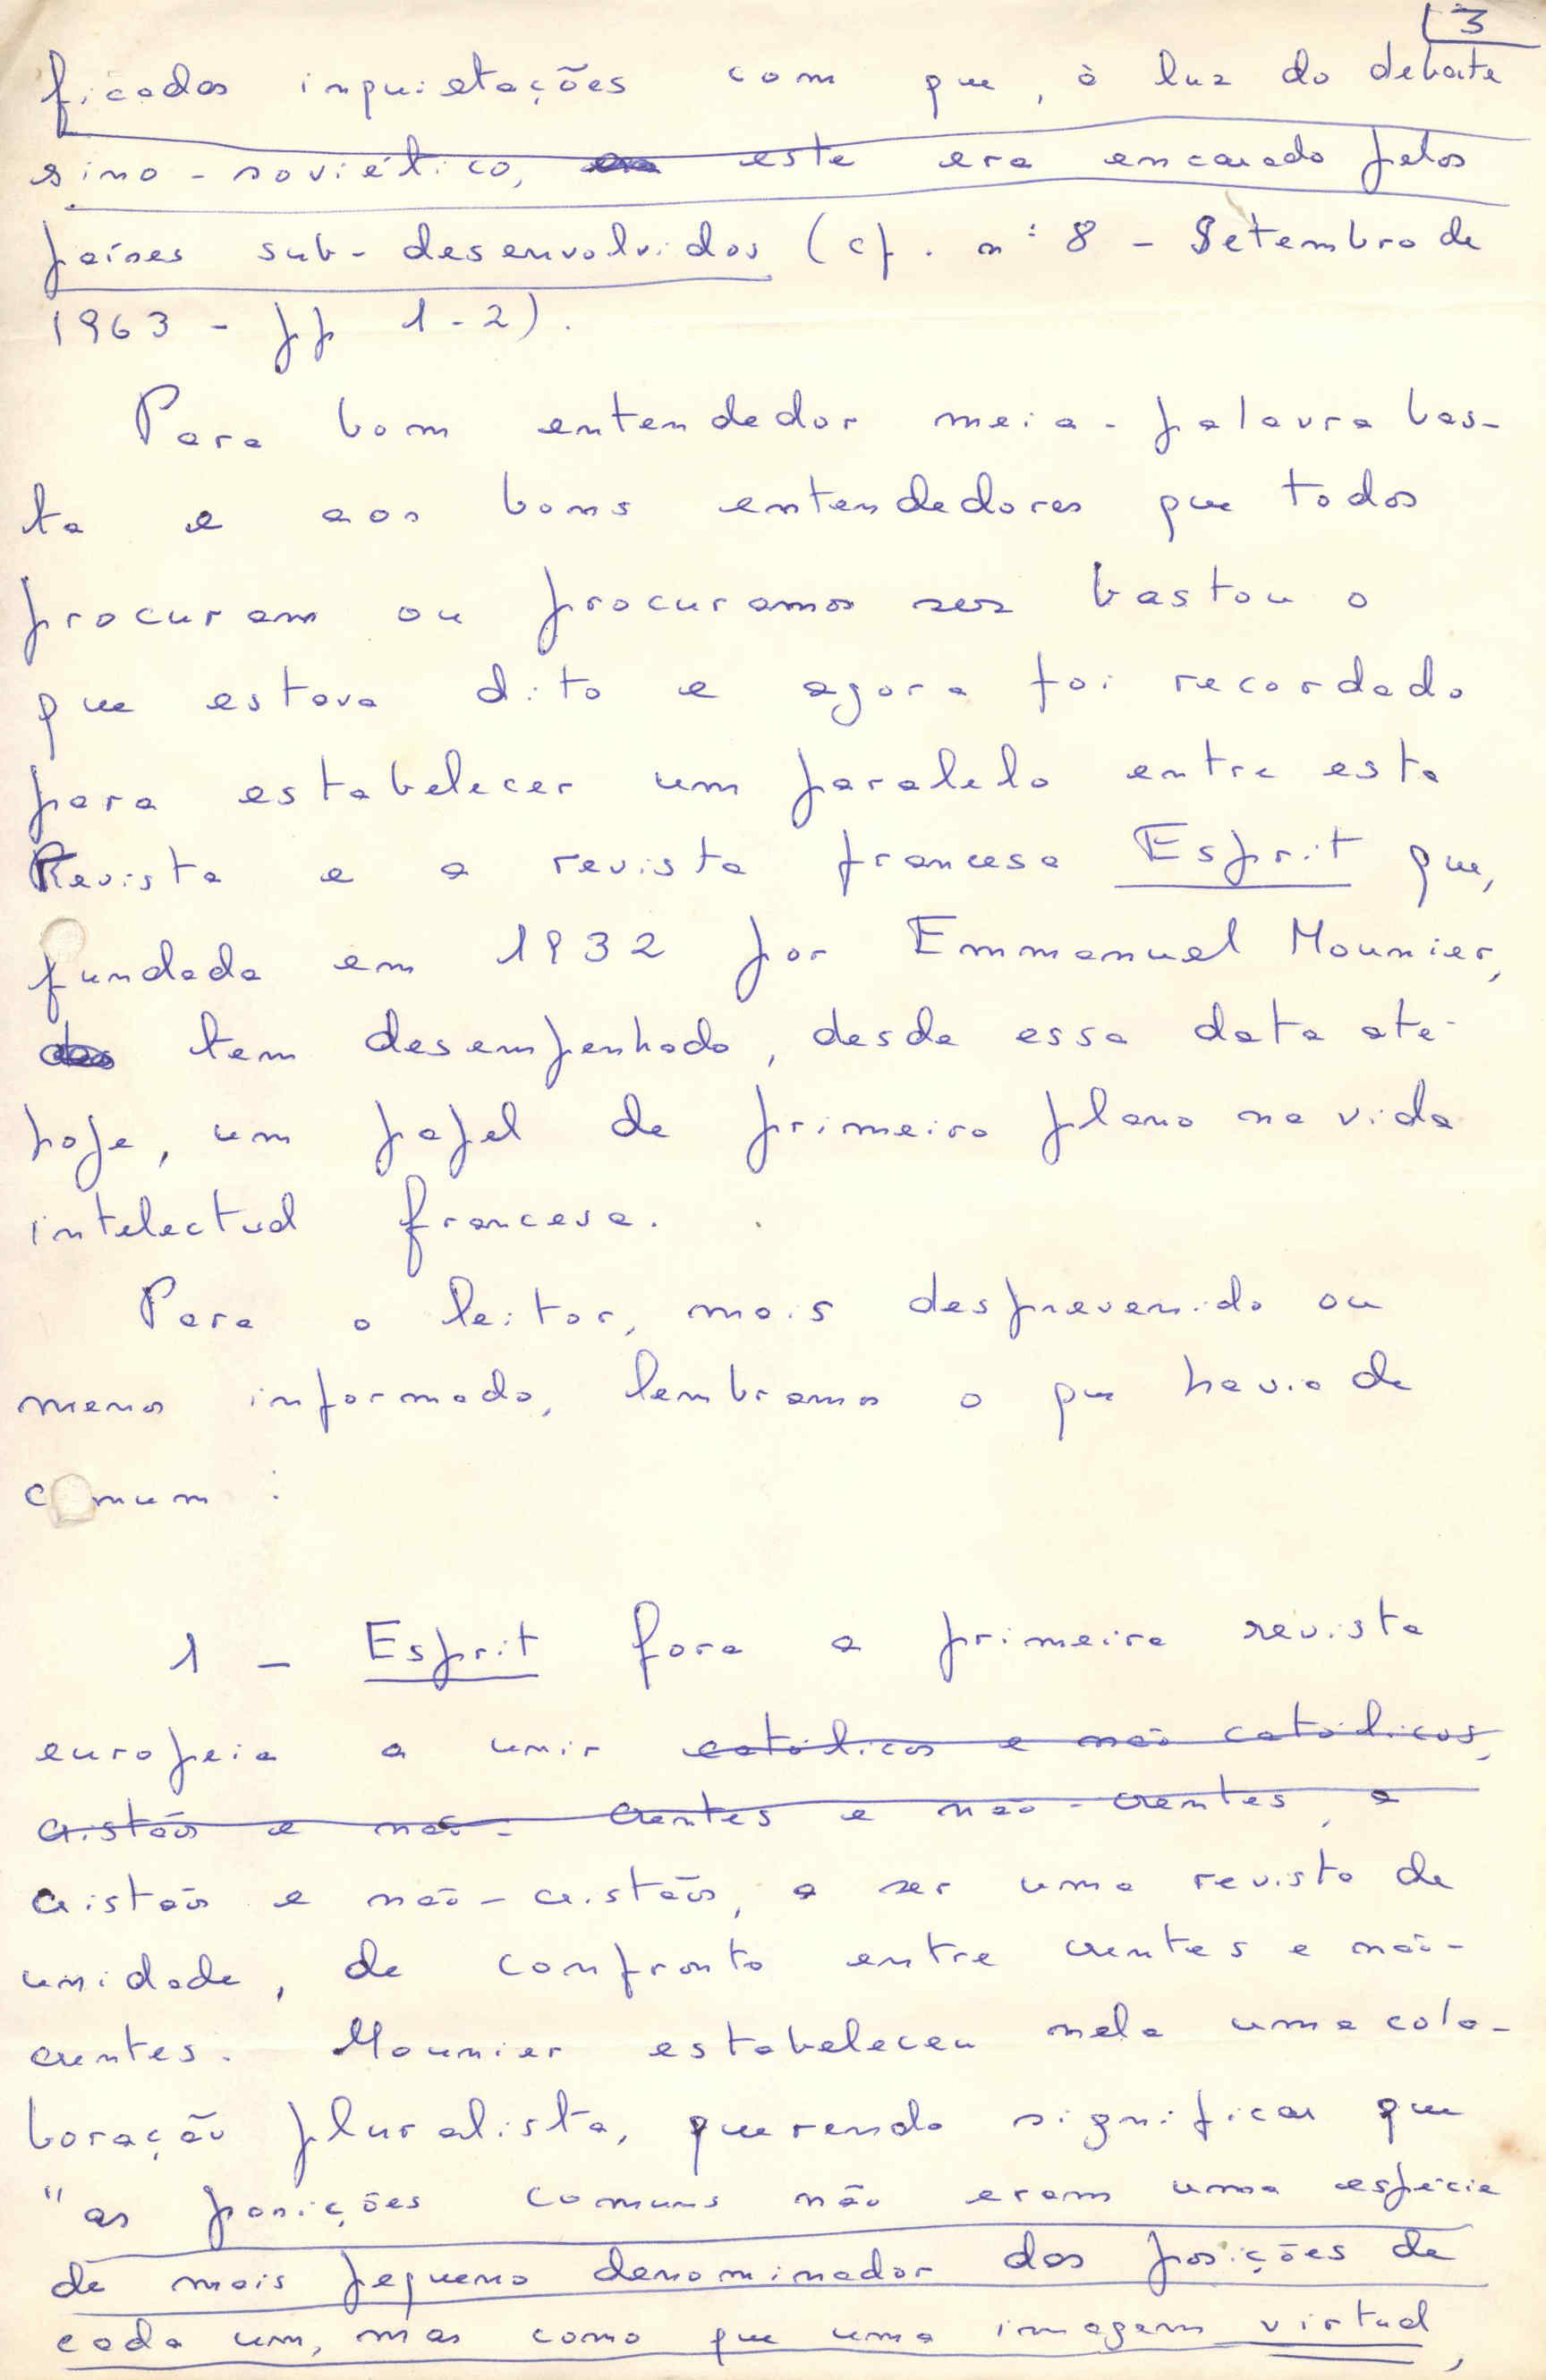 3
ficadas inquietações com que, à luz do debate
sino-soviético, este era encarado pelos
países sub-desenvolvidos (cf. nº 8 - Setembro de
1963 - pp 1-2).
Para bom entendedor meia-palavra bas-
ta e aos bons entendedores que todos
procuram ou procuramos ser bastou o
que estava dito e agora foi recordado
para estabelecer um paralelo entre esta
Revista e a revista francesa Esprit que,
fundada em 1932 por Emmanuel Mounier,
tem desempenhado, desde essa data até
hoje, um papel de primeiro plano na vida
intelectual francesa.
Para o leitor, mais desprevenido ou
menos informado, lembramos o que havia de
comum :
1 - Esprit fora a primeira revista
europeia a unir católicos e não católicos,
cristãos e não- crentes e não-crentes, a
cristãos e não-cristãos, a ser uma revista de
unidade, de confronto entre crentes e não-
crentes. Mounier estabeleceu nela uma cola-
boração pluralista, querendo significar que
"as posições comuns não eram uma espécie
de mais pequeno denominador das posições de
cada um, mas como que uma imagem virtual,